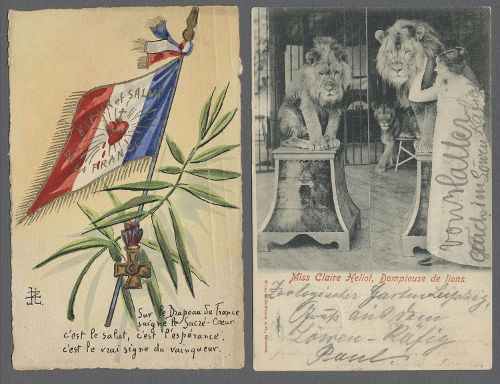 ESPOIR et SALUT
DE LA FRANCE
Sur le Drapeau du France
saigne le Sacré-Cœur
c'est le salut, c'est l'espérance,
c'est le vrai signe du vainqueur.
Miss Claire Heliot, Dompteuse de lions.
Zoologischer Garten Leipzig,
Gruß aus dem
Löwen-Käfig
Paul